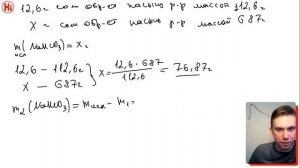 12,6г соли обр-ет насыщ р-р массой 112,6г
X г соли обр-ет насыщ р-р массой 687г
m(NaHCO₃) = x г
12,6 – 112г
X – 687г
} X = 12,6 · 687 / 112,6 = 76,87г
m₂(NaHCO₃) = mисх – m₁ =